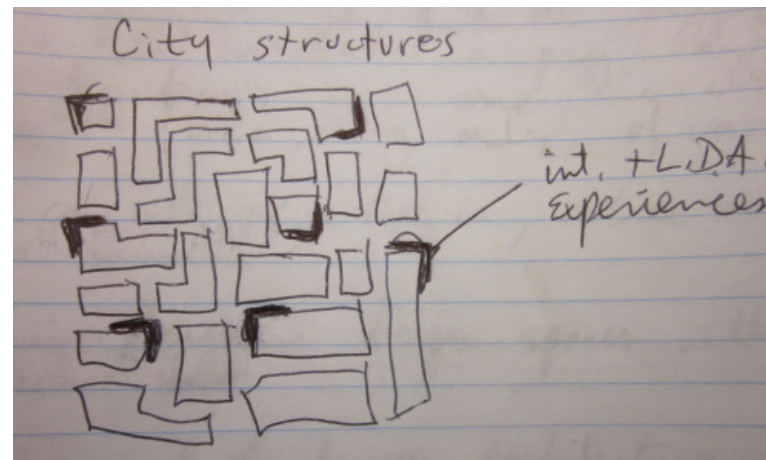 City structures
int. + L.D.A.
experiences